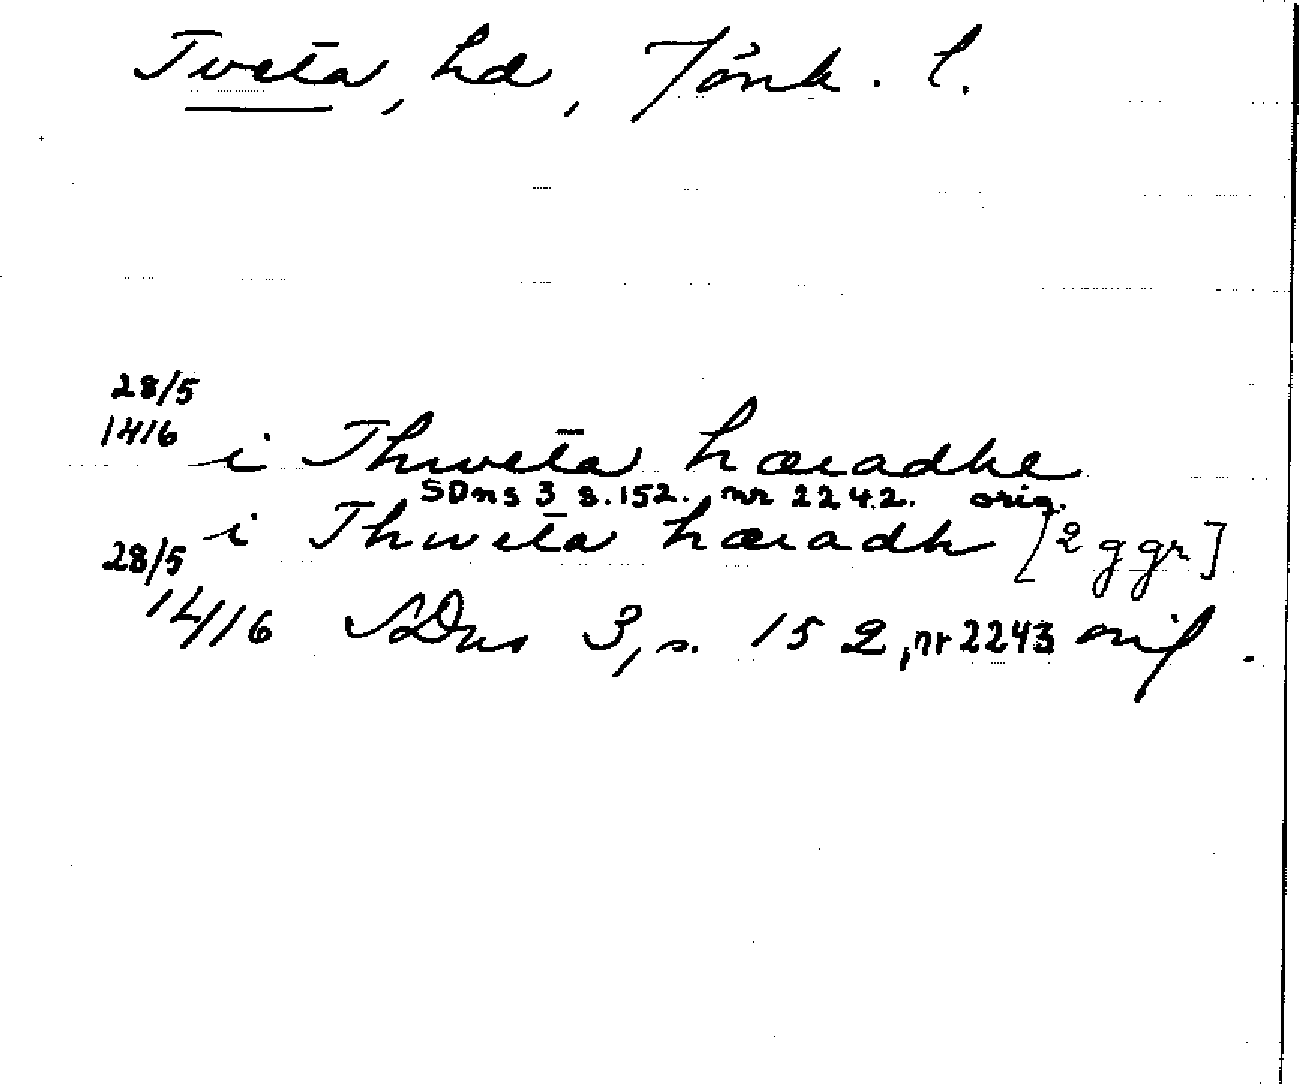 Tveta, hd, Jönk. l.
28/5
1416 i Thweta hæradhe
SDns 3 s. 152. nr 2242. orig.
i Thweta hæradh [2 ggr]
28/5
1416 SDns 3, s. 152, nr 2243 orig.